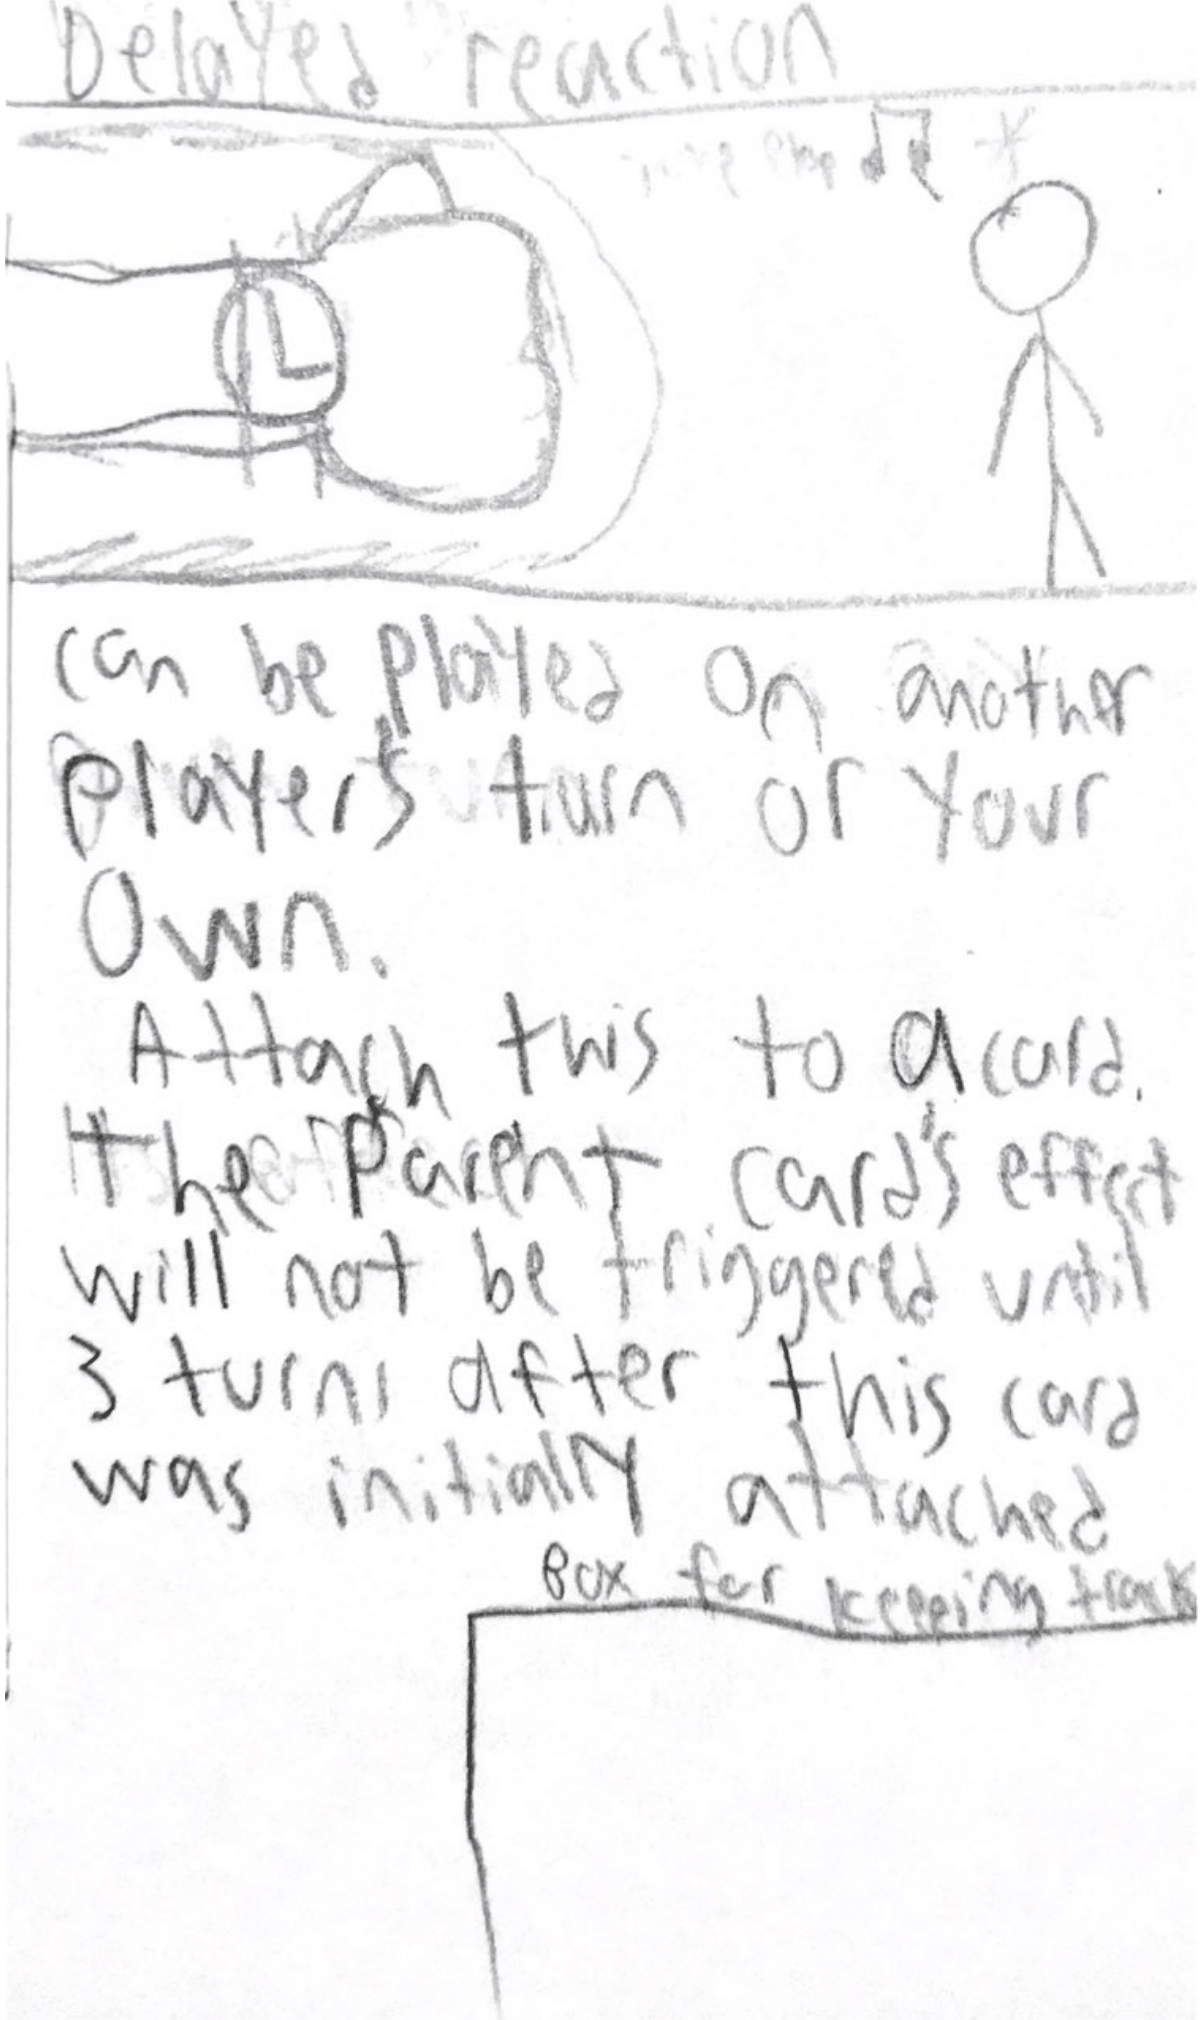 Delayed reaction
can be played on another
player's turn or your
own.
Attach this to a card.
the parent card's effect
will not be triggered until
3 turns after this card
was initially attached
Box for keeping track